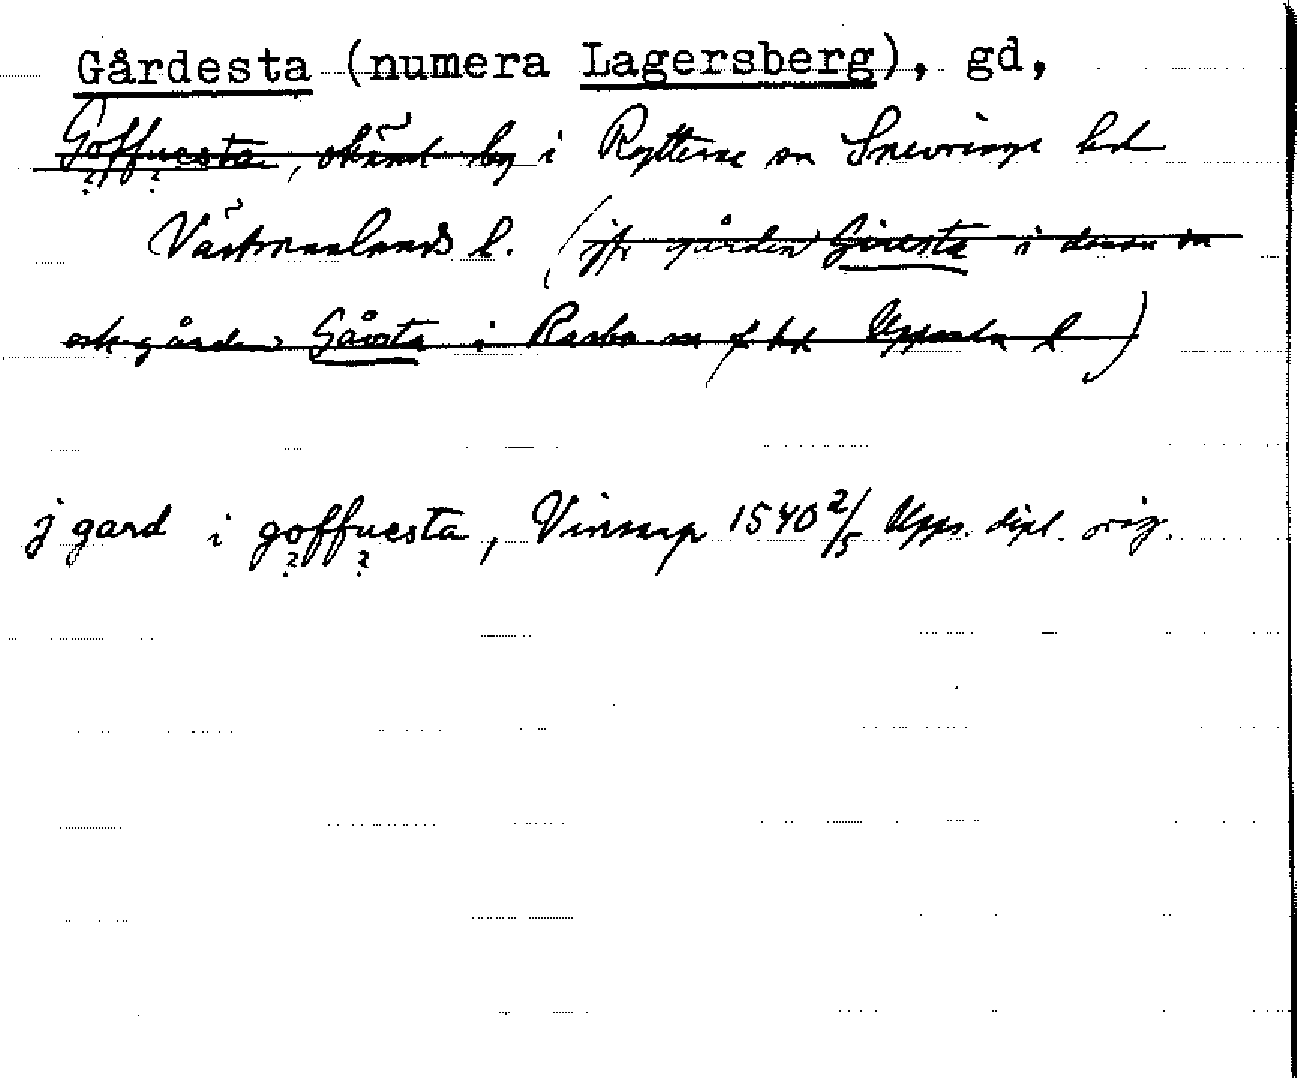 Gårdesta (numera Lagersberg), gd,
Goffuesta, okänd by i Rytterne sn Snevringe hd
Västmanlands l. (jfr gården Giresta i denna sn
och gården Gåvsta i Rasbo sn o hd Uppsala l)
j gard i goffuesta, Vinsarp 1540 2/5 Upps. dipl. orig.